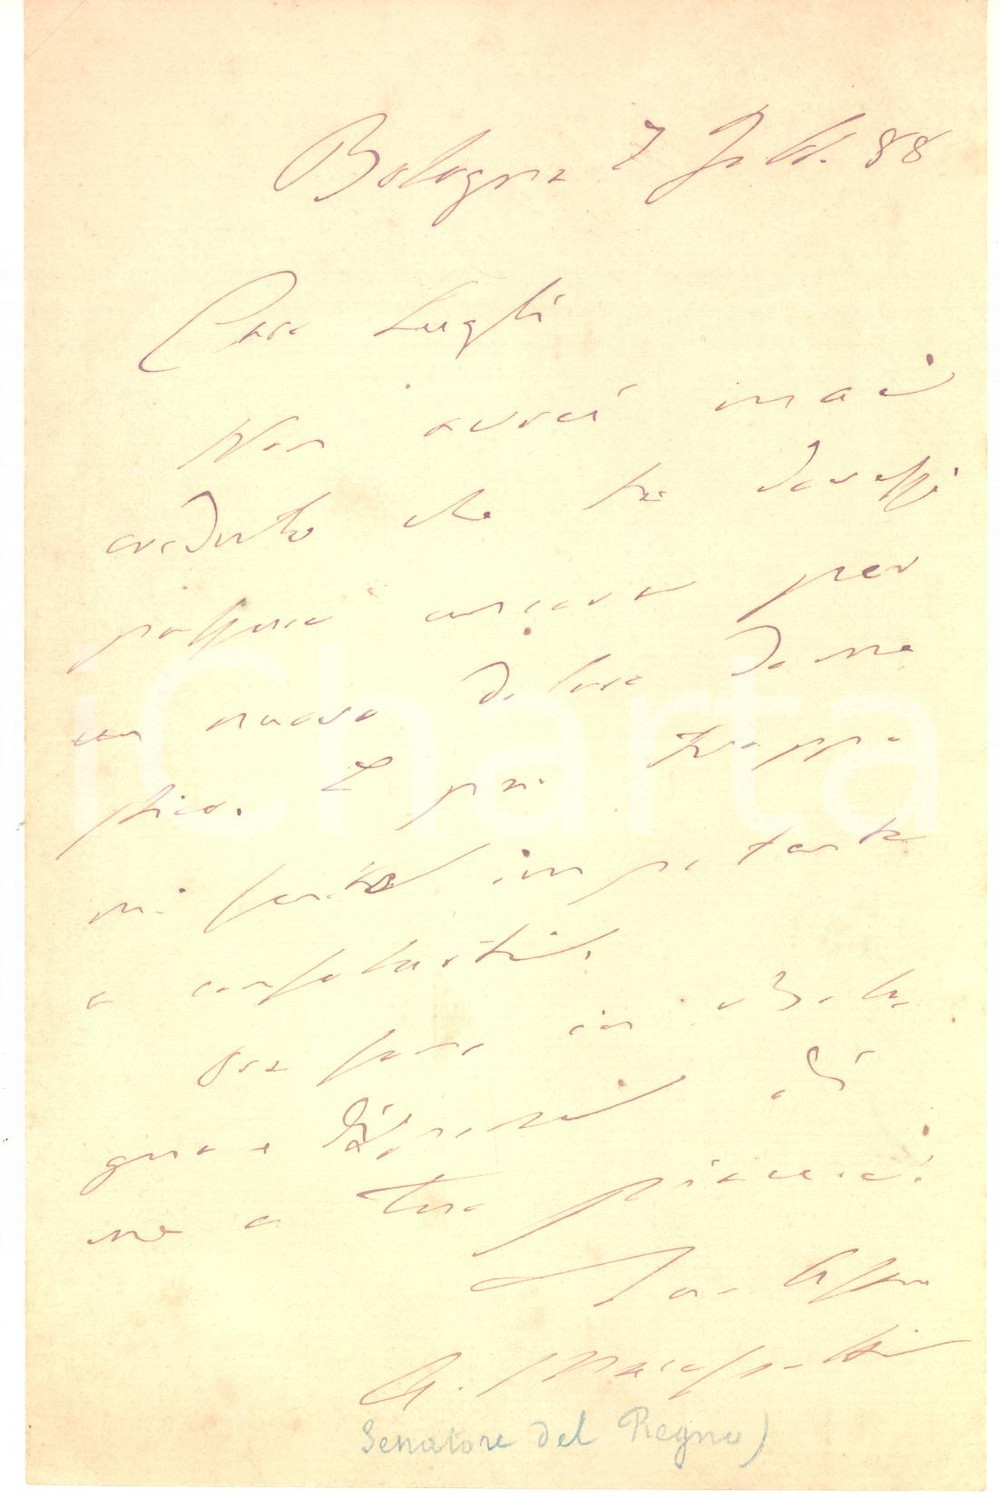 Bologna 7 Febb. 88
Caro Lugli
Non avrei mai
creduto che tu dovessi
passare ancora per
un nuovo dolore dome
stico. E pur troppo
mi sento impotente
a confortarti.
Ora sono in Bolo
gna e disponi di
me a tuo piacere.
Tuo affmo
Senatore del Regno)
iCharta